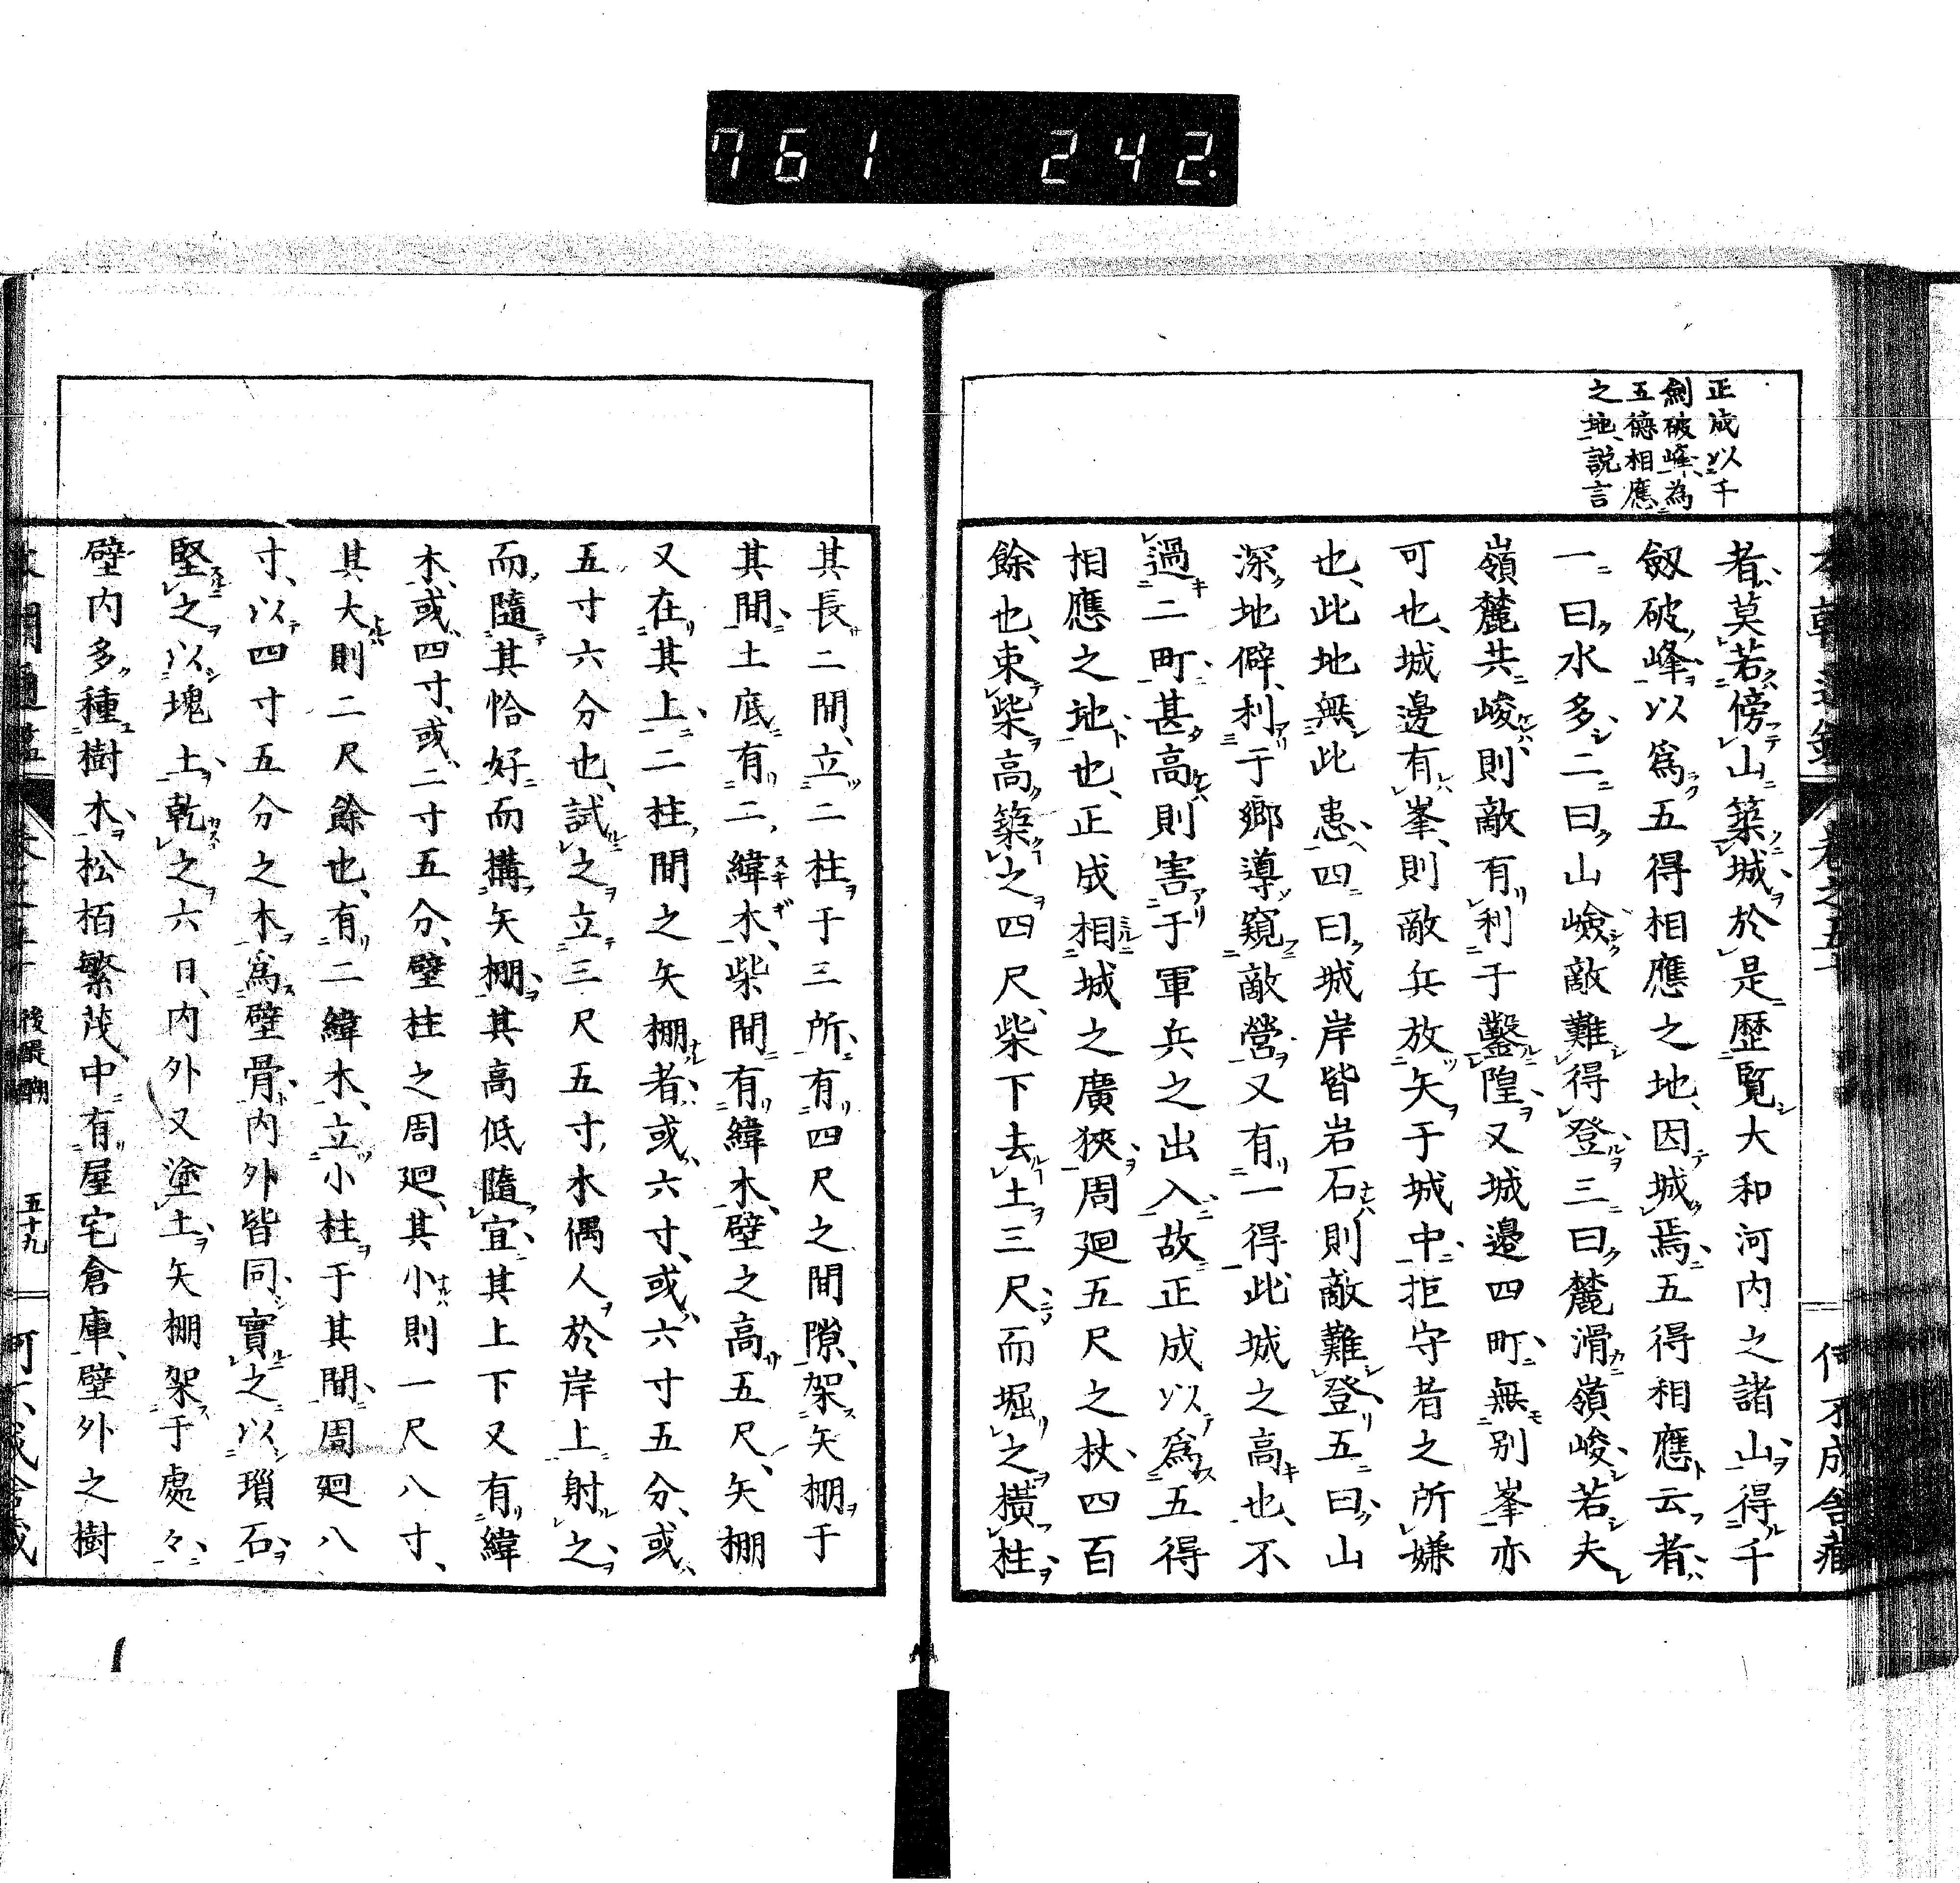 761 242.
正成以千
劍破峰、為
五德相應
之地、説言
者、莫若傍山築城、於是歷覧大和河内之諸山、得千
劔破峰、以爲五得相應之地、因城焉、五得相應云者、
一曰水多、二曰山嶮敵難得登、三曰麓滑嶺峻、若夫
嶺麓共峻、則敵有利于鑿隍、又城邊四町、無别峯亦
可也、城邊有峯、則敵兵放矢于城中、拒守者之所嫌
也、此地無此患、四曰城岸皆岩石、則敵難登、五曰山
深地僻、利于郷導窺敵營、又有一得、此城之高也、不
過二町、甚高則害于軍兵之出入、故正成以爲五得
相應之地也、正成相城之廣狹、周廻五尺之杖、四百
餘也、束柴高築之四尺、柴下去土三尺、而堀之横柱、
其長二間、立二柱于三所、有四尺之間隙、架矢棚于
其間、土底有二緯木、柴間有緯木、壁之高五尺、矢棚
又在其上、二柱間之矢棚者、或六寸、或六寸五分、或
五寸六分也、試之立三尺五寸木偶人於岸上射之、
而隨其恰好而構矢棚、其高低隨宜、其上下又有緯
木、或四寸、或二寸五分、壁柱之周廻、其小則一尺八寸、
其大則二尺餘也、有二緯木、立小柱于其間、周廻八
寸、以四寸五分之木、爲壁骨、内外皆同、實之以瑣石、
堅之以塊土、乾之六日、内外又塗土、矢棚架于處々、
壁内多種樹木、松栢繁茂、中有屋宅倉庫、壁外之樹
後醍醐
五十九